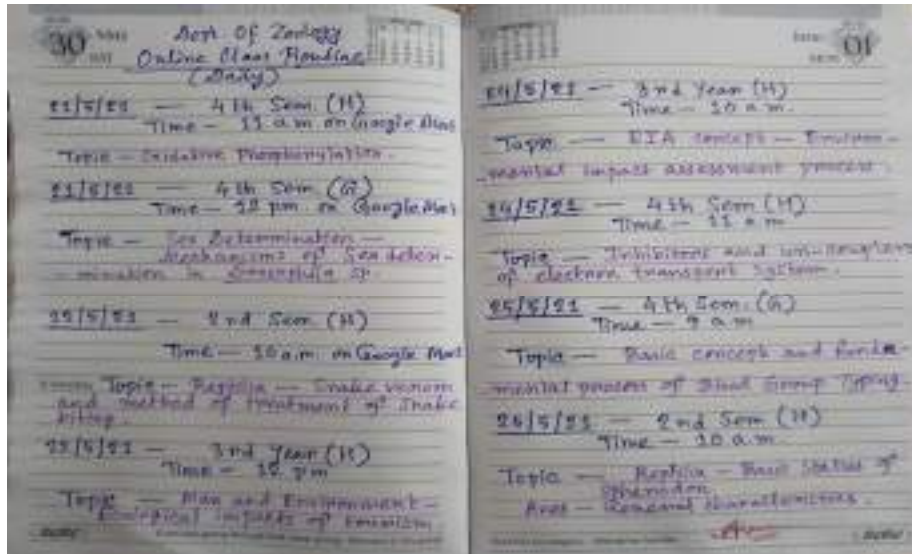 30
Dept Of Zoology
Online Class Routine
(Daily)
21/5/21 — 4th Sem. (H)
Time — 11 a.m on Google Meet
Topic — Oxidative Phosphorylation.
21/5/21 — 4th Sem. (G)
Time — 12 pm on Google Meet
Topic — Sex Determination —
Mechanisms of Sex deter-
-mination in Drosophila sp.
22/5/21 — 2nd Sem. (H)
Time — 10 a.m. on Google Meet
Topic — Reptilia — Snake venom
and method of treatment of Snake
biting.
22/5/21 — 3rd Year (H)
Time — 12 pm
Topic — Man and Environment —
Ecological impacts of
01
24/5/21 — 3rd Year (H)
Time — 10 a.m.
Topic — EIA concept — Environ-
-mental impact assessment process.
24/5/21 — 4th Sem (H)
Time — 11 a.m
Topic — Inhibitors and un-couplers
of electron transport system.
25/5/21 — 4th Sem. (G)
Time — 9 a.m
Topic — Basic concept and funda-
-mental process of Blood Group Typing.
2nd Sem (H)
Time — 10 a.m.
Topic — Reptilia — Basic Status of
Sphenodon
Aves — General characteristics.